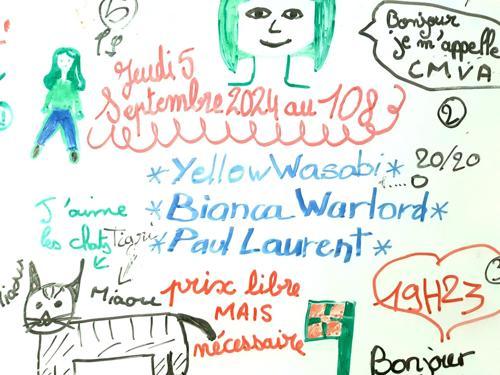 Bonjour
je m'appelle
CMVA
2
Jeudi 5
Septembre 2024 au 108
*YellowWasabi*
20/20
*Bianca Warlord*
*Paul Laurent*
J'aime
les chats
Tigri
Miaou
Miaou
prix libre
MAIS
nécessaire
19H23
Bonjour